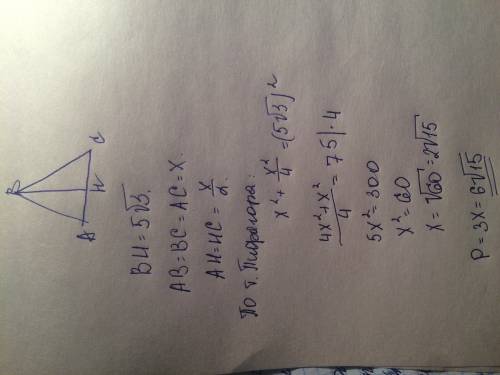 B
A H C
BH = 5√3.
AB = BC = AC = X
AH = HC = X/2.
По т. Пифагора:
x² + x²/4 = (5√3)²
4x² + x²/4 = 75 | · 4
5x² = 300
x² = 60
x = √60 = 2√15
P = 3x = 6√15